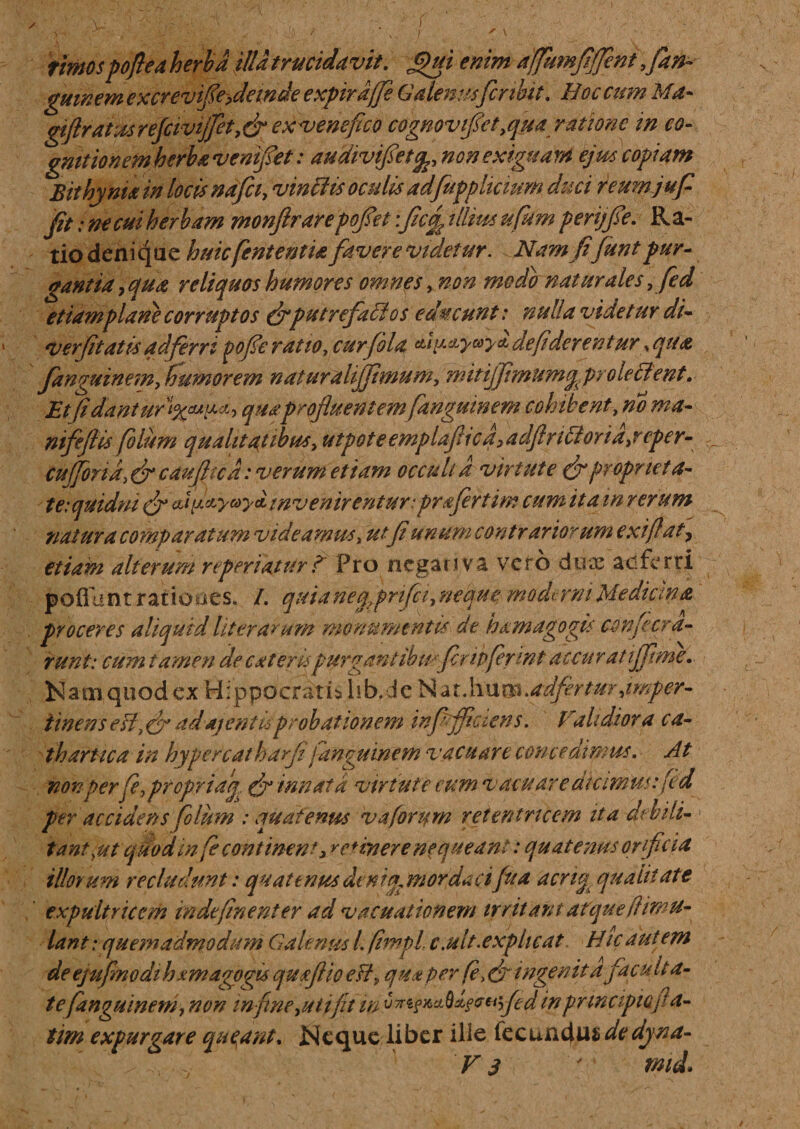 rimos postea herbâ illâ trucidavit. Qui enim assumsissent, san-
guinem excrevisse, deinde expirâsse Galenus scribit. Hoc cum Ma-
gistratus rescivisset, & ex venefico cognovisset, qua ratione in co-
gnitionem herbæ venisset: audivisset, non exiguam ejus copiam
Bithyniæ in locis nasci, vinctis oculis ad supplicium duci reum jus-
sit: ne cui herbam monstrare posset: sicq; illius usum perijsse. Ra-
tio denique huic sententiæ favere videtur. Nam si sunt pur-
gantia, quæ reliquos humores omnes, non modò naturales, sed
etiam planè corruptos & putrefactos educunt: nulla videtur di-
versitatis adferri posse ratio, cur sola αἱμαγωγὰ desiderentur, quæ
sanguinem, humorem naturalissimum, mitissimumq; prolectent.
Et si dantur ἴχαιμα, quæ profluentem sanguinem cohibent, nō ma-
nifestis solùm qualitatibus, utpote emplasticâ, adstrictoriâ, reper-
cussoriâ, & causticâ: verum etiam occultâ virtute & proprieta-
te: quidni & αἱμαγωγὰ invenirentur: præsertim cum ita in rerum
natura comparatum videamus, ut si unum contrariorum existat,
etiam alterum reperiatur? Pro negativa verò duæ adferri
possunt rationes. 1. quia neq; prisci, neque moderni Medicinæ
proceres aliquid literarum monumentis de hæmagogis consecrâ-
runt: cum tamen de cæteris purgantibus scripserint accuratissimè.
Nam quod ex Hippocratis lib. de Nat. hum. adfertur, imper-
tinens est, & ad ajentis probationem insufficiens. Validiora ca-
thartica in hypercatharsi sanguinem vacuare concedimus. At
non per se, propriaq; & innatâ virtute eum vacuare dicimus: sed
per accidens solùm: quatenus vasorum retentricem ita debili-
tant, ut quod in se continent, retinere nequeant: quatenus orificia
illorum recludunt: quatenus deniq; mordaci sua acriq; qualitate
expultricem indesinenter ad vacuationem irritant atque stimu-
lant: quemadmodum Galenus l. simpl. c. ult. explicat. Hic autem
de ejusmodi hæmagogis quæstio est, quæ per se, & ingenitâ faculta-
te sanguinem, non in fine, uti fit in ὑπερκαθάρσει, sed in principio sta-
tim expurgare queant. Neque liber ille secundus de dyna-
V 3 mid.